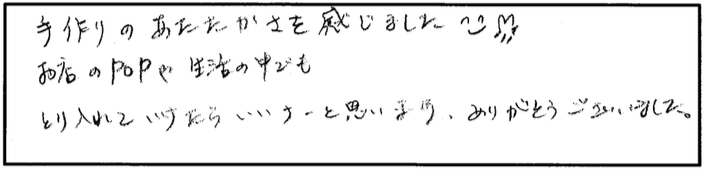 手作りのあたたかさを感じました
お店のPOPや生活の中でも
とり入れていけたらいいなーと思います、ありがとうございました。